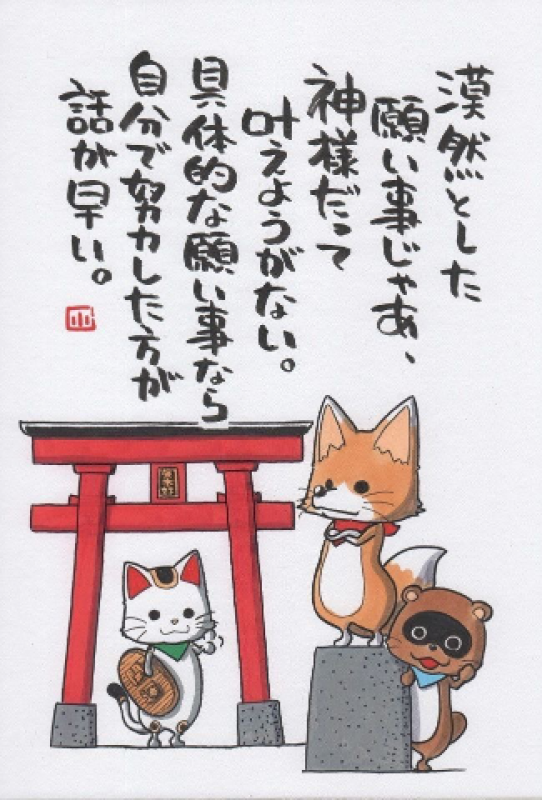 漠然とした
願い事じゃあ、
神様だって
叶えようがない。
具体的な願い事なら
自分で努力した方が
話が早い。